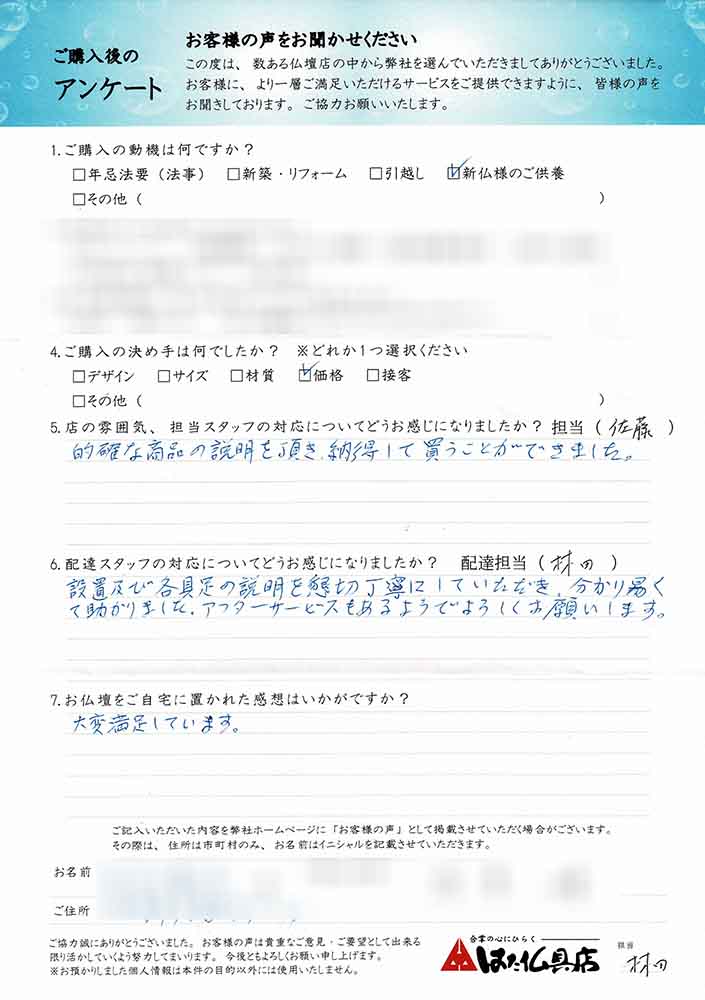 ご購入後の
アンケート
お客様の声をお聞かせください
この度は、数ある仏壇店の中から弊社を選んでいただきましてありがとうございました。
お客様に、より一層ご満足いただけるサービスをご提供できますように、皆様の声を
お聞きしております。ご協力お願いいたします。
1.ご購入の動機は何ですか？
□年忌法要（法事） □新築・リフォーム □引越し ☑新仏様のご供養
□その他（ ）
4.ご購入の決め手は何でしたか？ ※どれか1つ選択ください
□デザイン □サイズ □材質 ☑価格 □接客
□その他（ ）
5.店の雰囲気、担当スタッフの対応についてどうお感じになりましたか？担当（佐藤）
的確な商品の説明を頂き、納得して買うことができました。
6.配達スタッフの対応についてどうお感じになりましたか？ 配達担当（林田）
設置及び各具足の説明を懇切丁寧にしていただき、分かり易く
て助かりました。アフターサービスもあるようでよろしくお願いします。
7.お仏壇をご自宅に置かれた感想はいかがですか？
大変満足しています。
ご記入いただいた内容を弊社ホームページに「お客様の声」として掲載させていただく場合がございます。
その際は、住所は市町村のみ、お名前はイニシャルを記載させていただきます。
お名前
ご住所
ご協力誠にありがとうございました。お客様の声は貴重なご意見・ご要望として出来る
限り活かしていくよう努力してまいります。今後ともよろしくお願い申し上げます。
※お預かりしました個人情報は本件の目的以外には使用いたしません。
合掌の心にひらく
はた仏具店
担当
林田